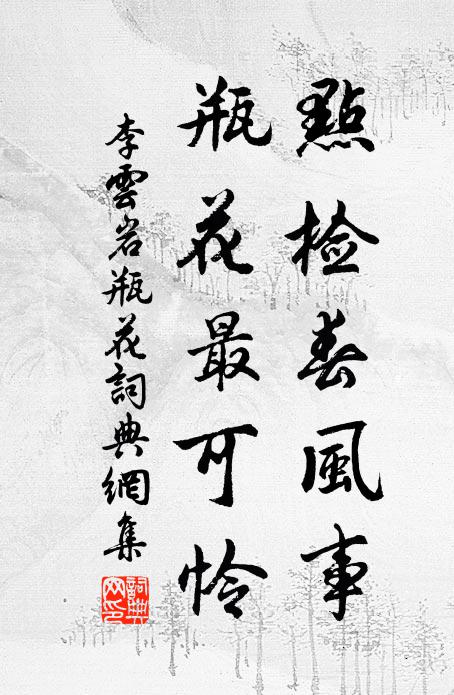 點檢春風事
瓶花最可怜
李雲岩瓶花詞典網集
詞典網印